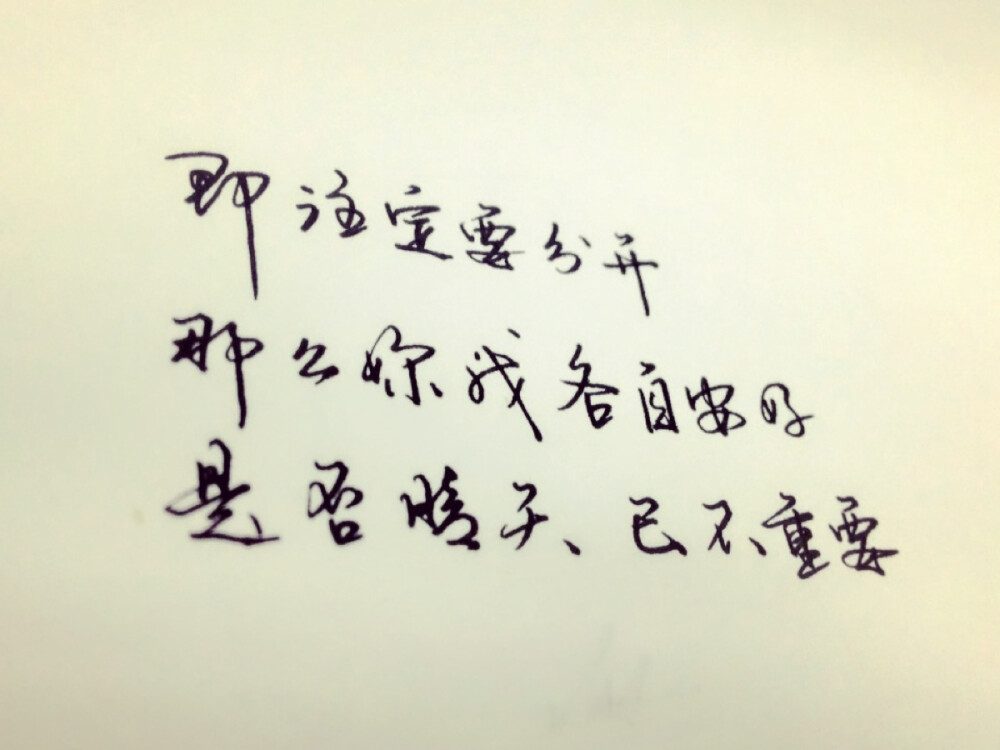 即注定要分开
那么妳我各自安好
是否晴天、已不重要